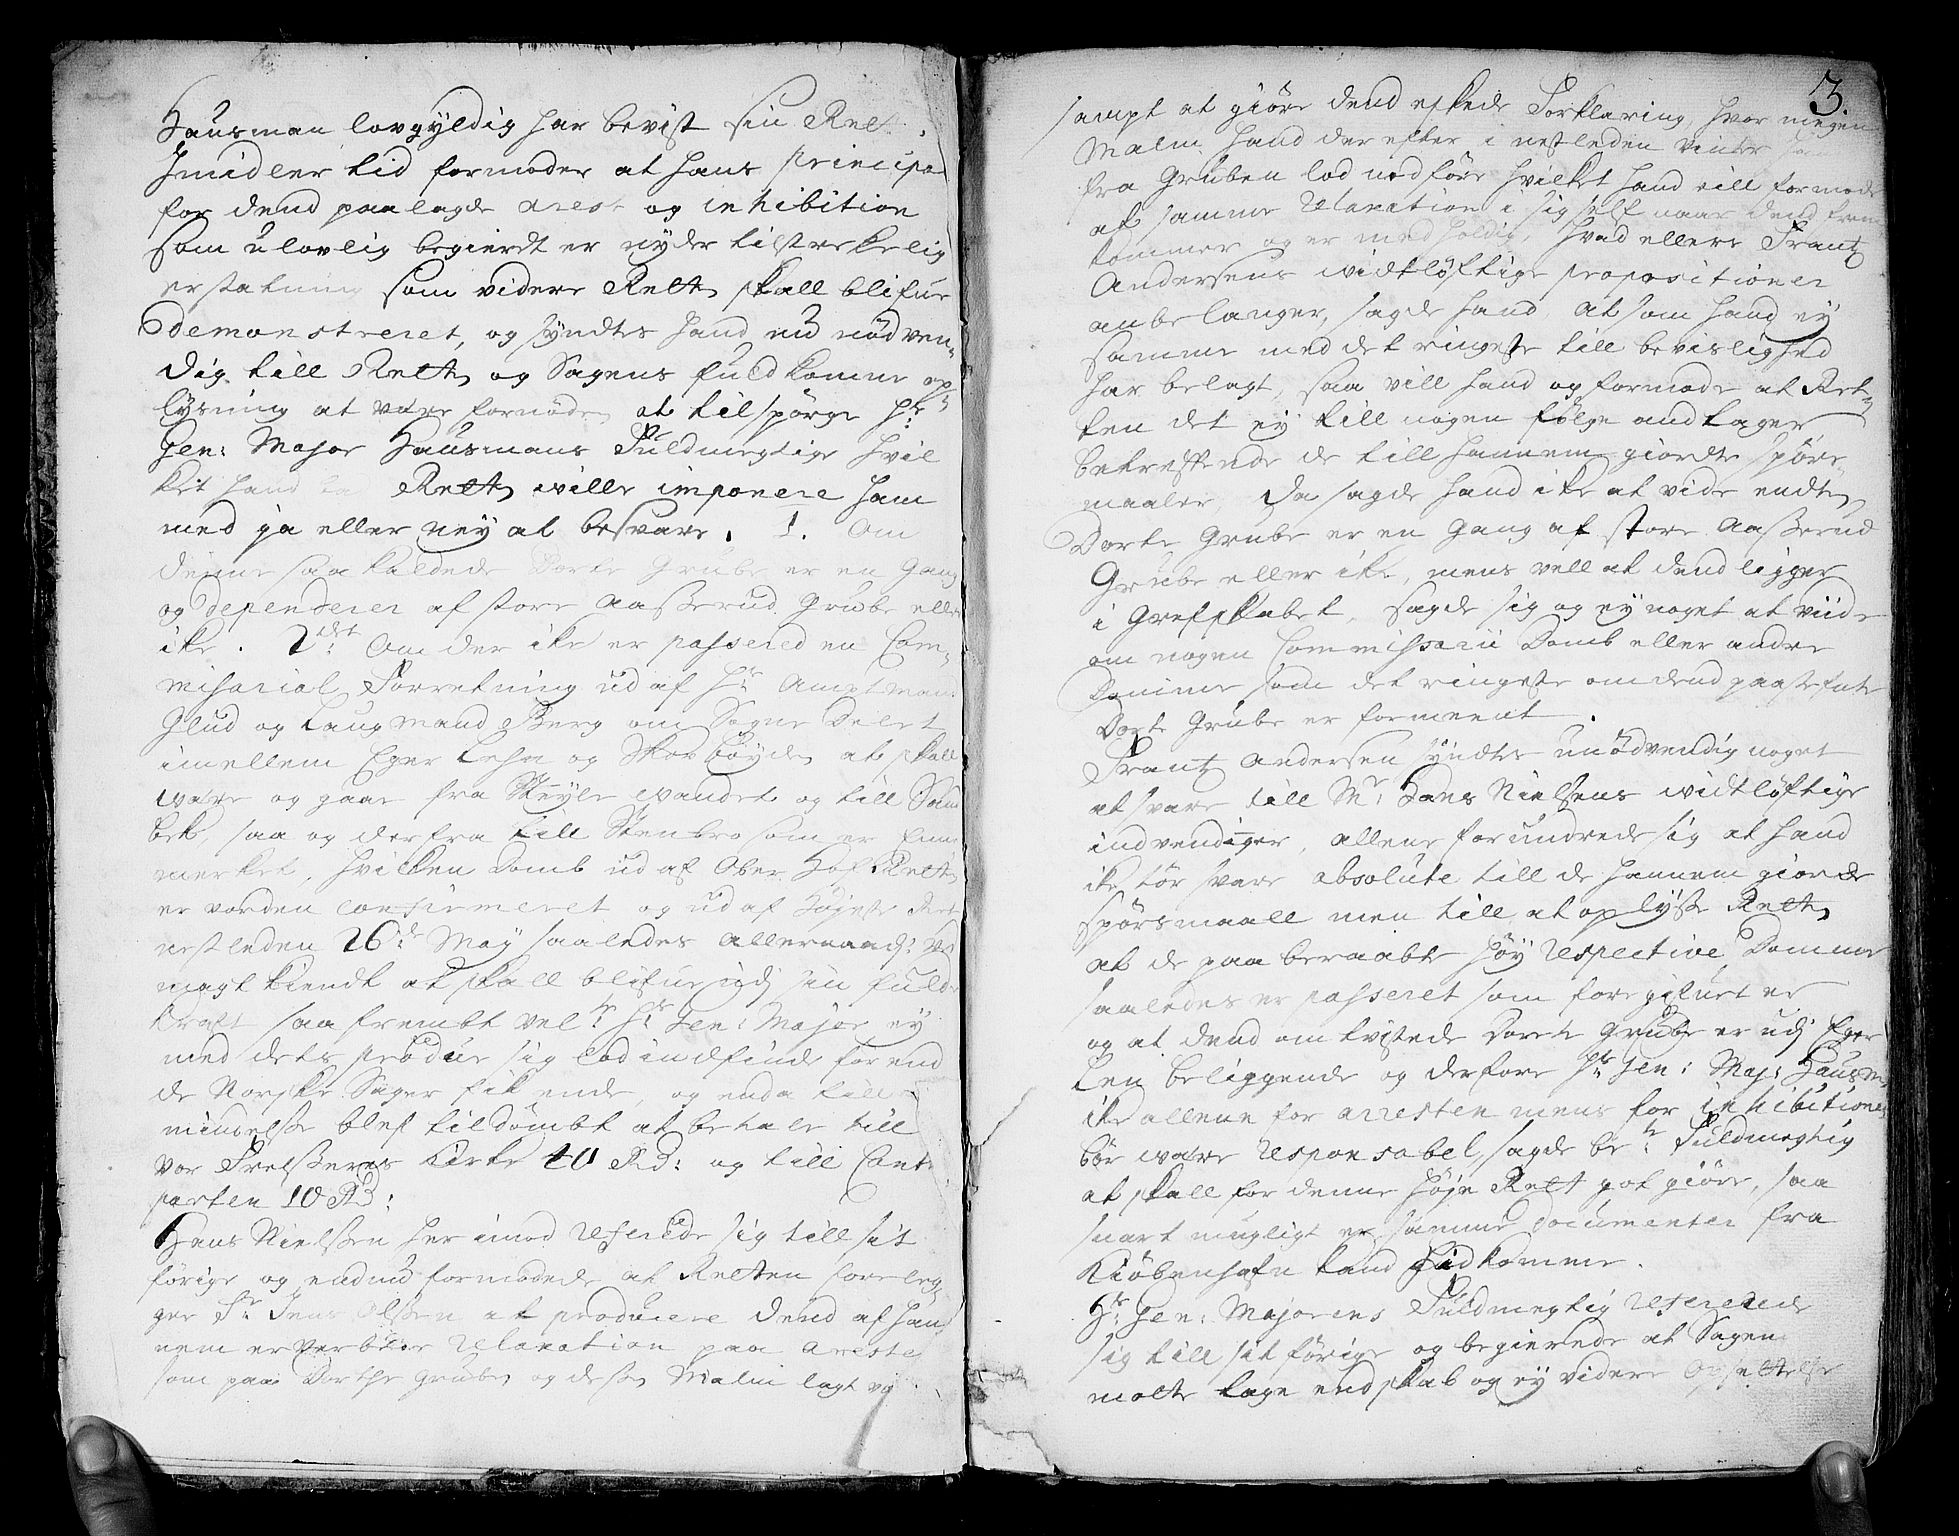 Hausman lovgyldig har bevist sin Rett.
Imidler tid formoder at hans principa
for dend paalagde arest og inhibition
som ulovlig begierdt er nyder tilstrekelig
erstatning som videre Retten skall blifue
demonstreret, og syndtes hand nu nödven-
dig till Retten og Sagens fuldkomne op-
lysning at være fornöden at tilspörge Hr:
Gen: Major Hausmans Fuldmegtige hvil
ket hand Retten wille imponere ham
med ja eller ney at besvare. 1. Om
denne saa kaldede Dorte Grube er en Gang
og dependerer af store Aasserud Grube eller
ike. 2det Om der ike er passered en Com-
misarial Forretning ud af Hr Amptman
Glud og Laugmand Berg om Sogne Delet
imellem Eger Lehn og Skorböyden at skall
være og gaae fra Skuyle wandet og till Sand
bek, saa og derfra till Stenbro som er
merket, hvilken Domb ud af Ober Hof Retten
er vorden confirmeret og ud af Höjeste Ret
nestleden 26de May saaledes allernaadigst
magt kiendt at skall blifue udj sin fulde
Kraft saa frembt velbr Hr Gen: Major ey
med dets prodúc sig lod indfinde forend
de Norske Sager fik ende, og enda till
mindelse blef tildömbt at betale till
vor Frelseres Kirke 20 RD: og till Cont
parten 10 RD:
Hans Nielssen her imod refererede sig till sit
förige og endnu formodede at Retten foreleg-
ger Sr Jens Olssen at producere dend af han
nem erverbede relaxation paa Arresten
som paa Dorthe Gruben og dessen Malm lagt og
3.
sampt at giöre dend eskede Forklaring, hvor megen
Malm hand der efter i nestleden vinter
fra Gruben lod nedföre hvilket hand vill formode
af samme relaxation i sig self naar dend frem
kommer og er med holdig, hvad ellers Frantz
Andersens widtlöftige propositioner
anbelanger, sagde hand, at som hand ey
samme med det ringeste till bevislighed
har belagt, saa vill hand og formode at Ret-
ten det ey till nogen fölge andtager
betreffende de till hannem giordte spörs-
maaler, da sagde hand ike at vide endten
Dorte Grube er en Gang af store Aasserud
Grube eller ike, mens vell at dend ligger
i Grefskabet, sagde sig og ey noget at viide
om nogen Commissarii Domb eller andre
Domme som det ringeste om dend paastefnte
Dorte Grube er formeent.
Frantz Andersen syndtes unödvendig noget
at svare till Mr: Hans Nielsens widtlöftige
indvendiger, allene forundrede sig at hand
ike tör svare absolute till de hannem giorde
spörsmaall men till at oplyse Retten
at de paa beraabte höy respective Domme
saaledes er passeret som foregifuet er
og at dend omtvistede Dorte Grube er udj Eger
Len beliggende og derfore Hr Gen: Maj: Hausm
ike allene for arresten mens for inhibitionen
bör være responsabel, sagde bete Fuldmegtig
at skall for denne höje Rett got giöre, saa
snart mugligt er samme documenter fra
Kiöbenhafn kand hidkomme.
Hr Gen: Majorens Fuldmegtig refererede
sig till sit förige og begierede at Sagen
motte tage endskab og ey videre Opsettelse